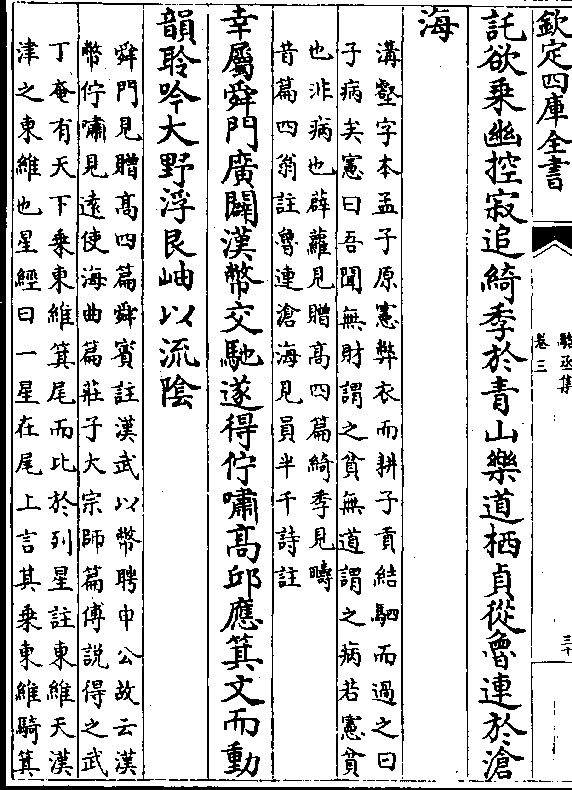 欽定四庫全書
駱丞集
卷三
三十
託欲乗幽控寂追綺季於青山樂道栖貞從魯連於滄
海
溝壑字本孟子原憲弊衣而耕子貢結駟而過之曰
子病矣憲曰吾聞無財謂之貧無道謂之病若憲貧
也非病也薜蘿見贈髙四篇綺季見疇
昔篇四翁註魯連滄海見員半千詩註
幸屬舜門廣闢漢幣交馳遂得佇嘯髙邱應箕文而動
韻聆吟大野浮艮岫以流陰
舜門見贈髙四篇舜賓註漢武以幣聘申公故云漢
幣佇嘯見遠使海曲篇莊子大宗師篇傅說得之武
丁奄有天下乗東維箕尾而比於列星註東維天漢
津之東維也星經曰一星在尾上言其乗東維騎箕